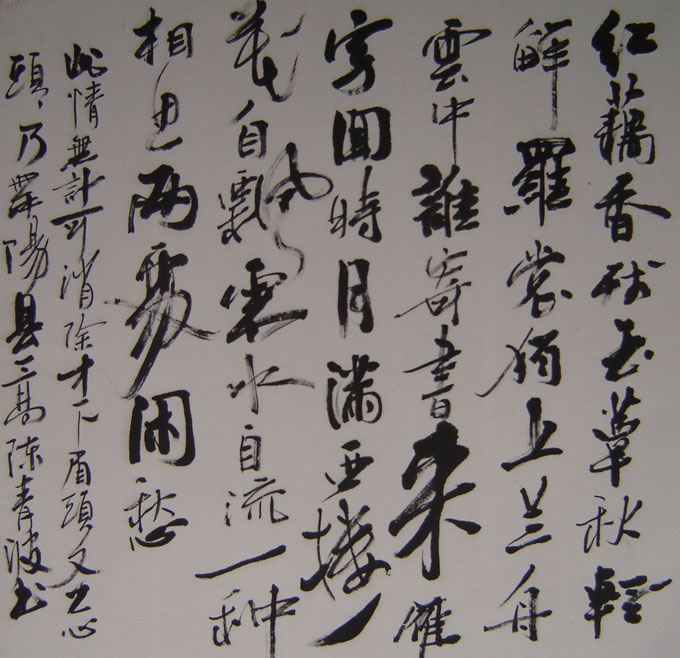 红藕香残玉簟秋輕
解羅裳獨上兰舟
雲中誰寄書来雁
字回時月滿西樓
花自飄零水自流一种
相思兩處閑愁
此情無計可消除才下眉頭又上心
頭乃陽县三高陈青波书